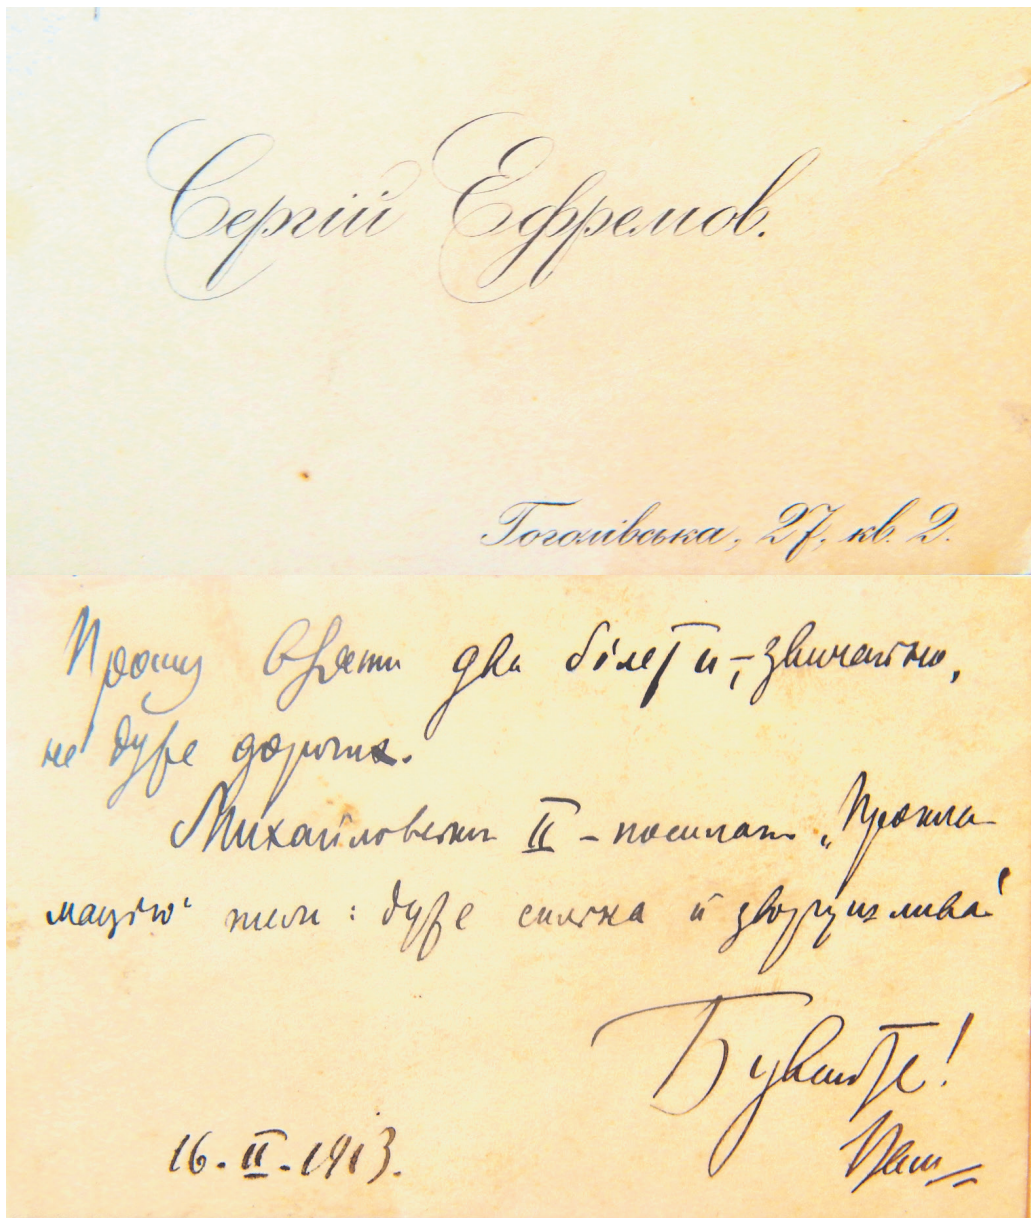 Сергій Ефремов.
Гоголівська, 27, кв. 2.
Прошу взяти два білети, – звичайно,
не дуже дорогих.
Михайловський II – посилаю „Прокла-
мацію“ : дуже сильна й зворушлива!
Бувайте!
Ваш
16. II. 1913.